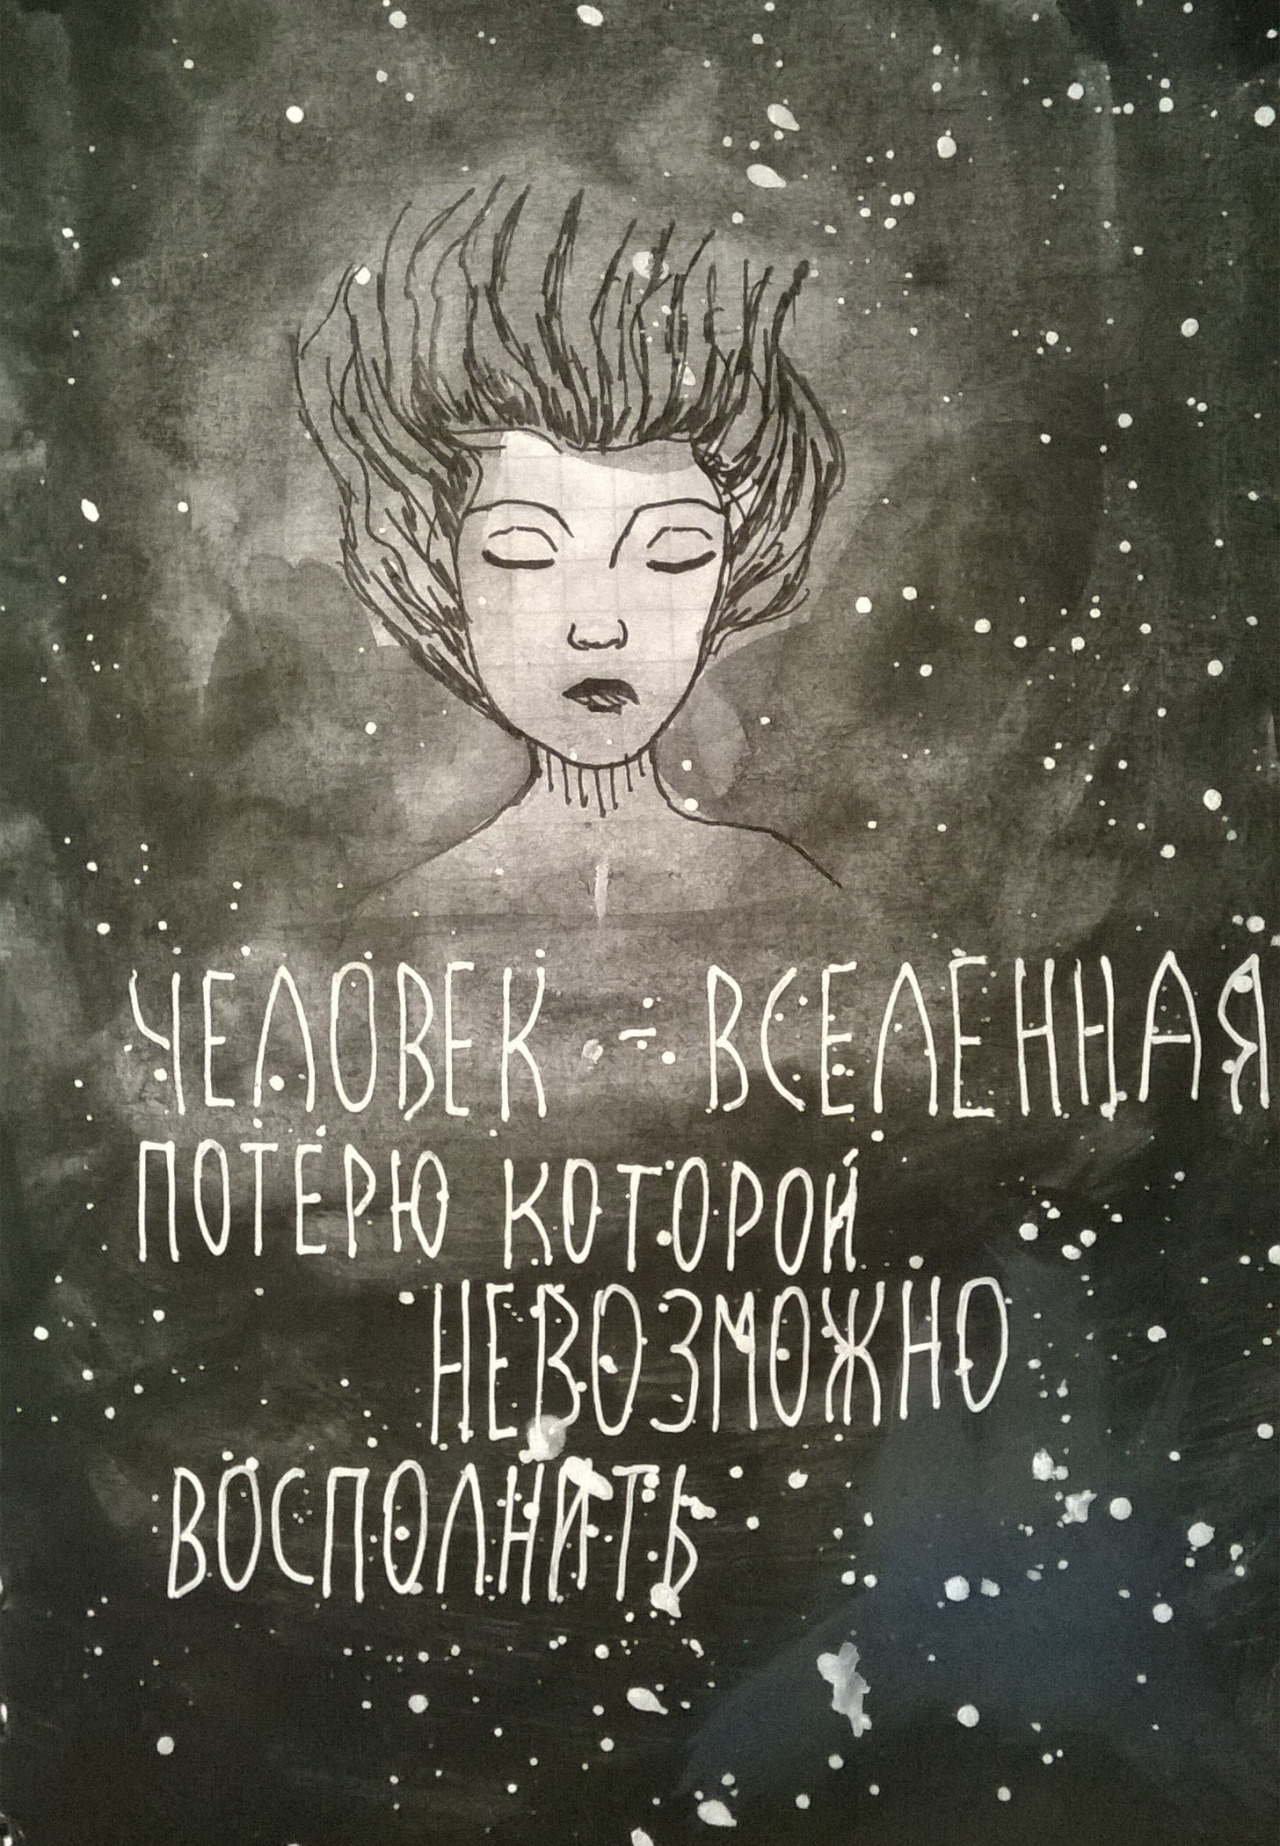 ЧЕЛОВЕК - ВСЕЛЕННАЯ
ПОТЕРЮ КОТОРОЙ
НЕВОЗМОЖНО
ВОСПОЛНИТЬ